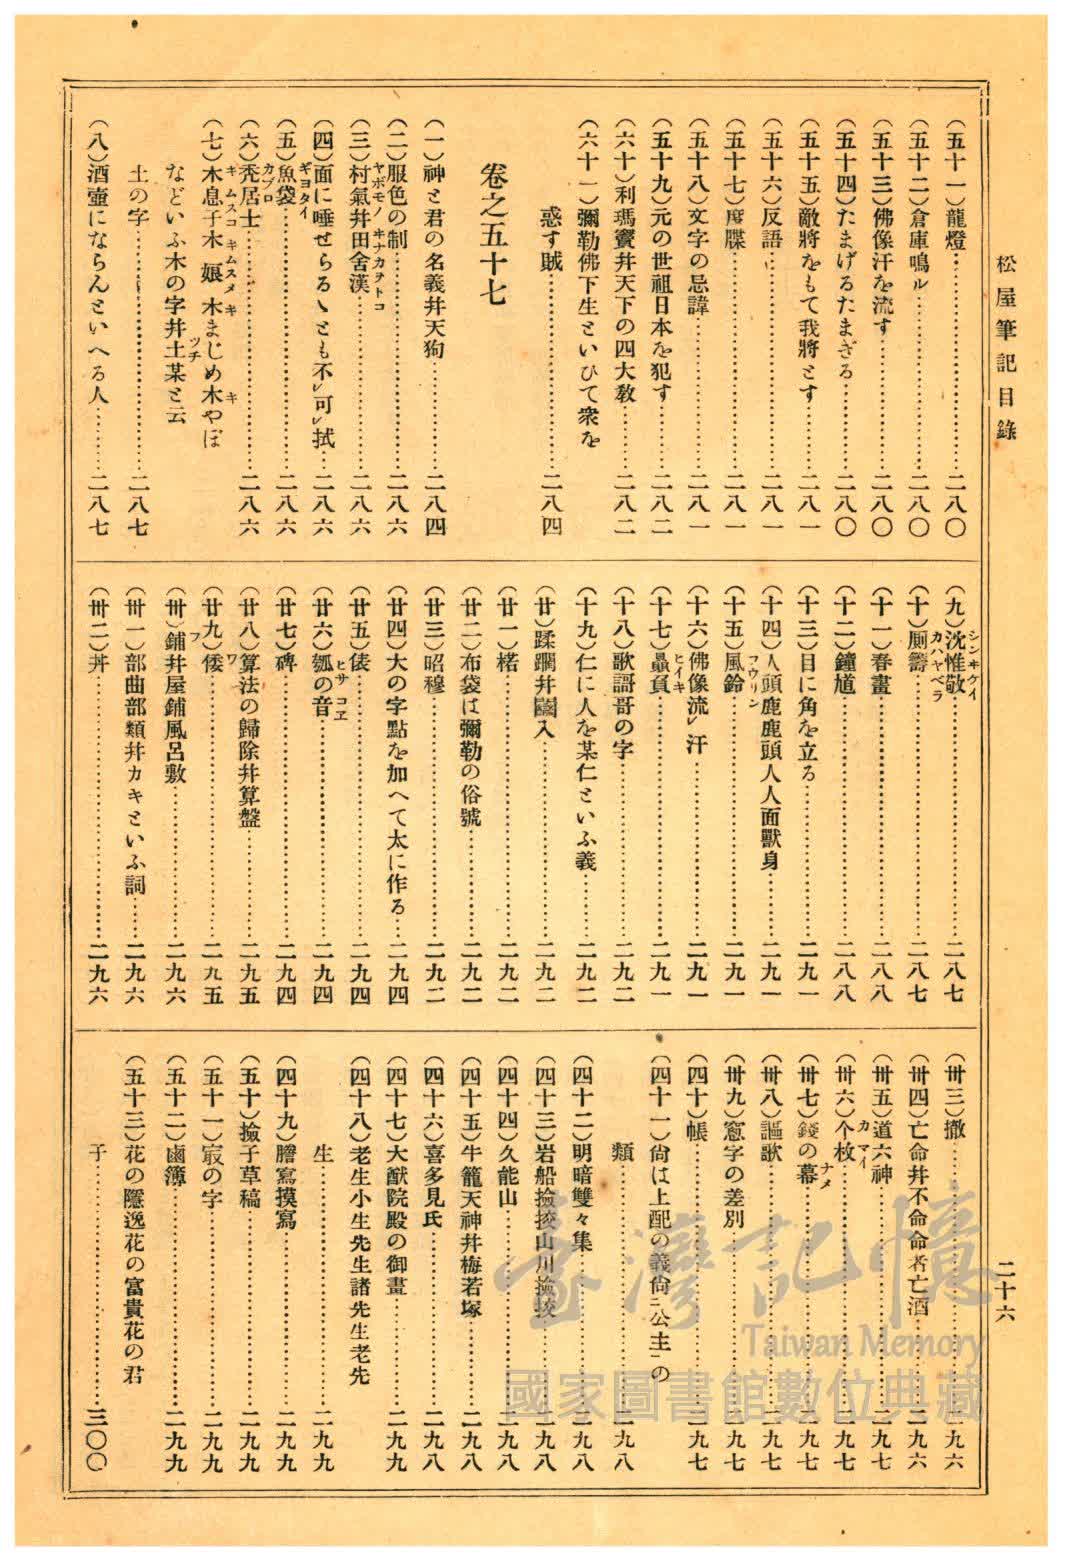 松屋筆記目錄
二十六
(五十一)龍燈…………二八〇
(五十二)倉庫鳴ル…………二八〇
(五十三)佛像汗を流す…………二八〇
(五十四)たまげるたまぎろ…………二八〇
(五十五)敵將をもて我將とす…………二八一
(五十六)反語…………二八一
(五十七)度牒…………二八一
(五十八)文字の忌諱…………二八一
(五十九)元の世祖日本を犯す…………二八二
(六十)利瑪竇井天下の四大敎…………二八二
(六十一)彌勒佛下生といひて衆を
惑す賊…………二八四
卷之五十七
(一)神と君の名義井天狗…………二八四
(二)服色の制…………二八六
(三)村氣井田舍漢…………二八六
ヤボモノ キナカヲトコ
(四)面に唾せらるゝとも不レ可レ拭…二八六
(五)魚袋…………二八六
ギヨタイ
(六)禿居士…………二八六
カブロ
(七)木息子木娘木まじめ木やぼ
キムスコ キムスメ キ キ
などいふ木の字井土某と云
ツチ
土の字…………二八七
(八)酒壺にならんといへる人……二八七
(九)沈惟敬…………二八七
シンキケイ
(十)厠籌…………二八七
カハヤベラ
(十一)春畫…………二八八
(十二)鐘馗…………二八八
(十三)目に角を立る…………二九一
(十四)人頭鹿鹿頭人人面獸身……二九一
(十五)風鈴…………二九一
フウリン
(十六)佛像流レ汗…………二九一
(十七)贔負…………二九一
ヒイキ
(十八)歌謌哥の字…………二九二
(十九)仁に人を某仁といふ義……二九二
(廿)蹂躙井闖入…………二九二
(廿一)楉…………二九二
(廿二)布袋は彌勒の俗號…………二九二
(廿三)昭穆…………二九二
(廿四)大の字點を加へて太に作る…二九四
(廿五)俵…………二九四
(廿六)瓠の音…………二九四
ヒサ コヱ
(廿七)碑…………二九四
(廿八)算法の歸除井算盤…………二九五
(廿九)倭…………二九五
ワ
(卅)鋪井屋鋪風呂敷…………二九六
フ
(卅一)部曲部類井カキといふ詞……二九六
(卅二)丼…………二九六
(卅三)撤…………二九六
(卅四)亡命井不命命者亡酒…………二九六
(卅五)道六神…………二九七
(卅六)个枚…………二九七
カ マイ
(卅七)錢の幕…………二九七
ナメ
(卅八)謳歌…………二九七
(卅九)寳字の差別…………二九七
(四十)帳…………二九七
(四十一)尙は上配の義尙ニ公主一の
類…………二九八
(四十二)明暗雙々集…………二九八
(四十三)岩船撿挍山川撿挍…………二九八
(四十四)久能山…………二九八
(四十五)牛籠天神井梅若塚…………二九八
(四十六)喜多見氏…………二九八
(四十七)大猷院殿の御畫…………二九九
(四十八)老生小生先生諸先生老先
生…………二九九
(四十九)謄寫摸寫…………二九九
(五十)撿子草稿…………二九九
(五十一)㝡の字…………二九九
(五十二)鹵簿…………二九九
(五十三)花の隱逸花の富貴花の君
子…………三〇〇
臺灣記憶
Taiwan Memory
國家圖書館數位典藏